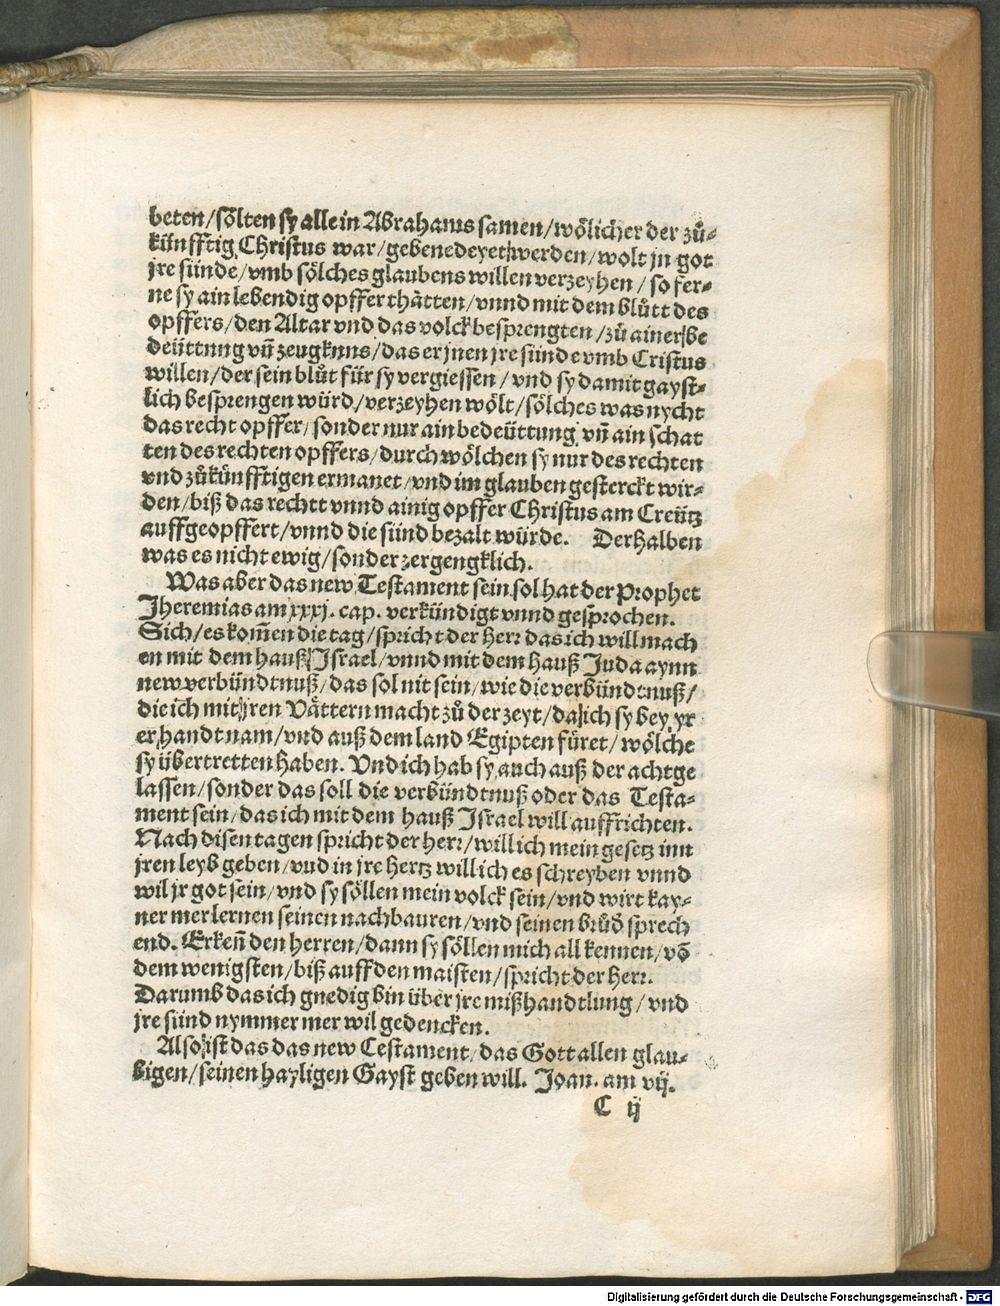 beten/sölten sy alle in Abrahams samen/wölicher der zů⸗
künfftig Christus war/gebenedeyet werden/wolt jn got
jre sünde/vmb sölches glaubens willen verzeyhen/so fer⸗
ne sy ain lebendig opffer thätten/vnnd mit dem blůtt des
opffers/den Altar vnd das volck besprengten/zů ainer be
deüttung vñ zeugknus/das er jnen jre sünde vmb Cristus
willen/der sein blůt für sy vergiessen/vnd sy damit gayst⸗
lich besprengen würd/verzeyhen wölt/sölches was nycht
das recht opffer/sonder nur ain bedeüttung vñ ain schat
ten des rechten opffers/durch wölchen sy nur des rechten
vnd zůkünfftigen ermanet/vnd im glauben gesterckt wir⸗
den/biß das rechtt vnnd ainig opffer Christus am Creütz
auffgeopffert/vnnd die sünd bezalt würde. Derhalben
was es nicht ewig/sonder zergengklich.
Was aber das new Testament sein sol hat der Prophet
Jheremias am xxxj. cap. verkündigt vnnd gesprochen.
Sich/es kom̃en die tag/spricht der Herr das ich will mach
en mit dem hauß Israel/vnnd mit dem Hauß Juda aynn
new verbündtnuß/das sol nit sein/wie die verbündtnuß/
die ich mit jren Vättern macht zů der zeyt/da ich sy bey yr
er handt nam/vnd auß dem land Egipten füret/wölche
sy übertretten haben. Vnd ich hab sy auch auß der acht ge
lassen/sonder das soll die verbündtnuß oder das Testa⸗
ment sein/das ich mit dem hauß Israel will auffrichten.
Nach disen tagen spricht der herr/will ich mein gesetz inn
jren leyb geben/vnd in jre Hertz will ich es schreyben vnnd
wil jr got sein/vnd sy söllen mein volck sein/vnd wirt kay⸗
ner mer lernen seinen nachbauren/vnd seinen brůd̄ sprech
end. Erkeñ den herren/dann sy söllen mich all kennen/võ
dem wenigsten/biß auff den maisten/spricht der Herr.
Darumb das ich gnedig bin über jre mißhandtlung/vnd
jre sünd nymmer mer wil gedencken.
Also ist das das new Testament/das Gott allen glau⸗
bigen/seinen hayligen Gayst geben will. Joan. am vij.
C ij
Digitalisierung gefördert durch die Deutsche Forschungsgemeinschaft - DFG